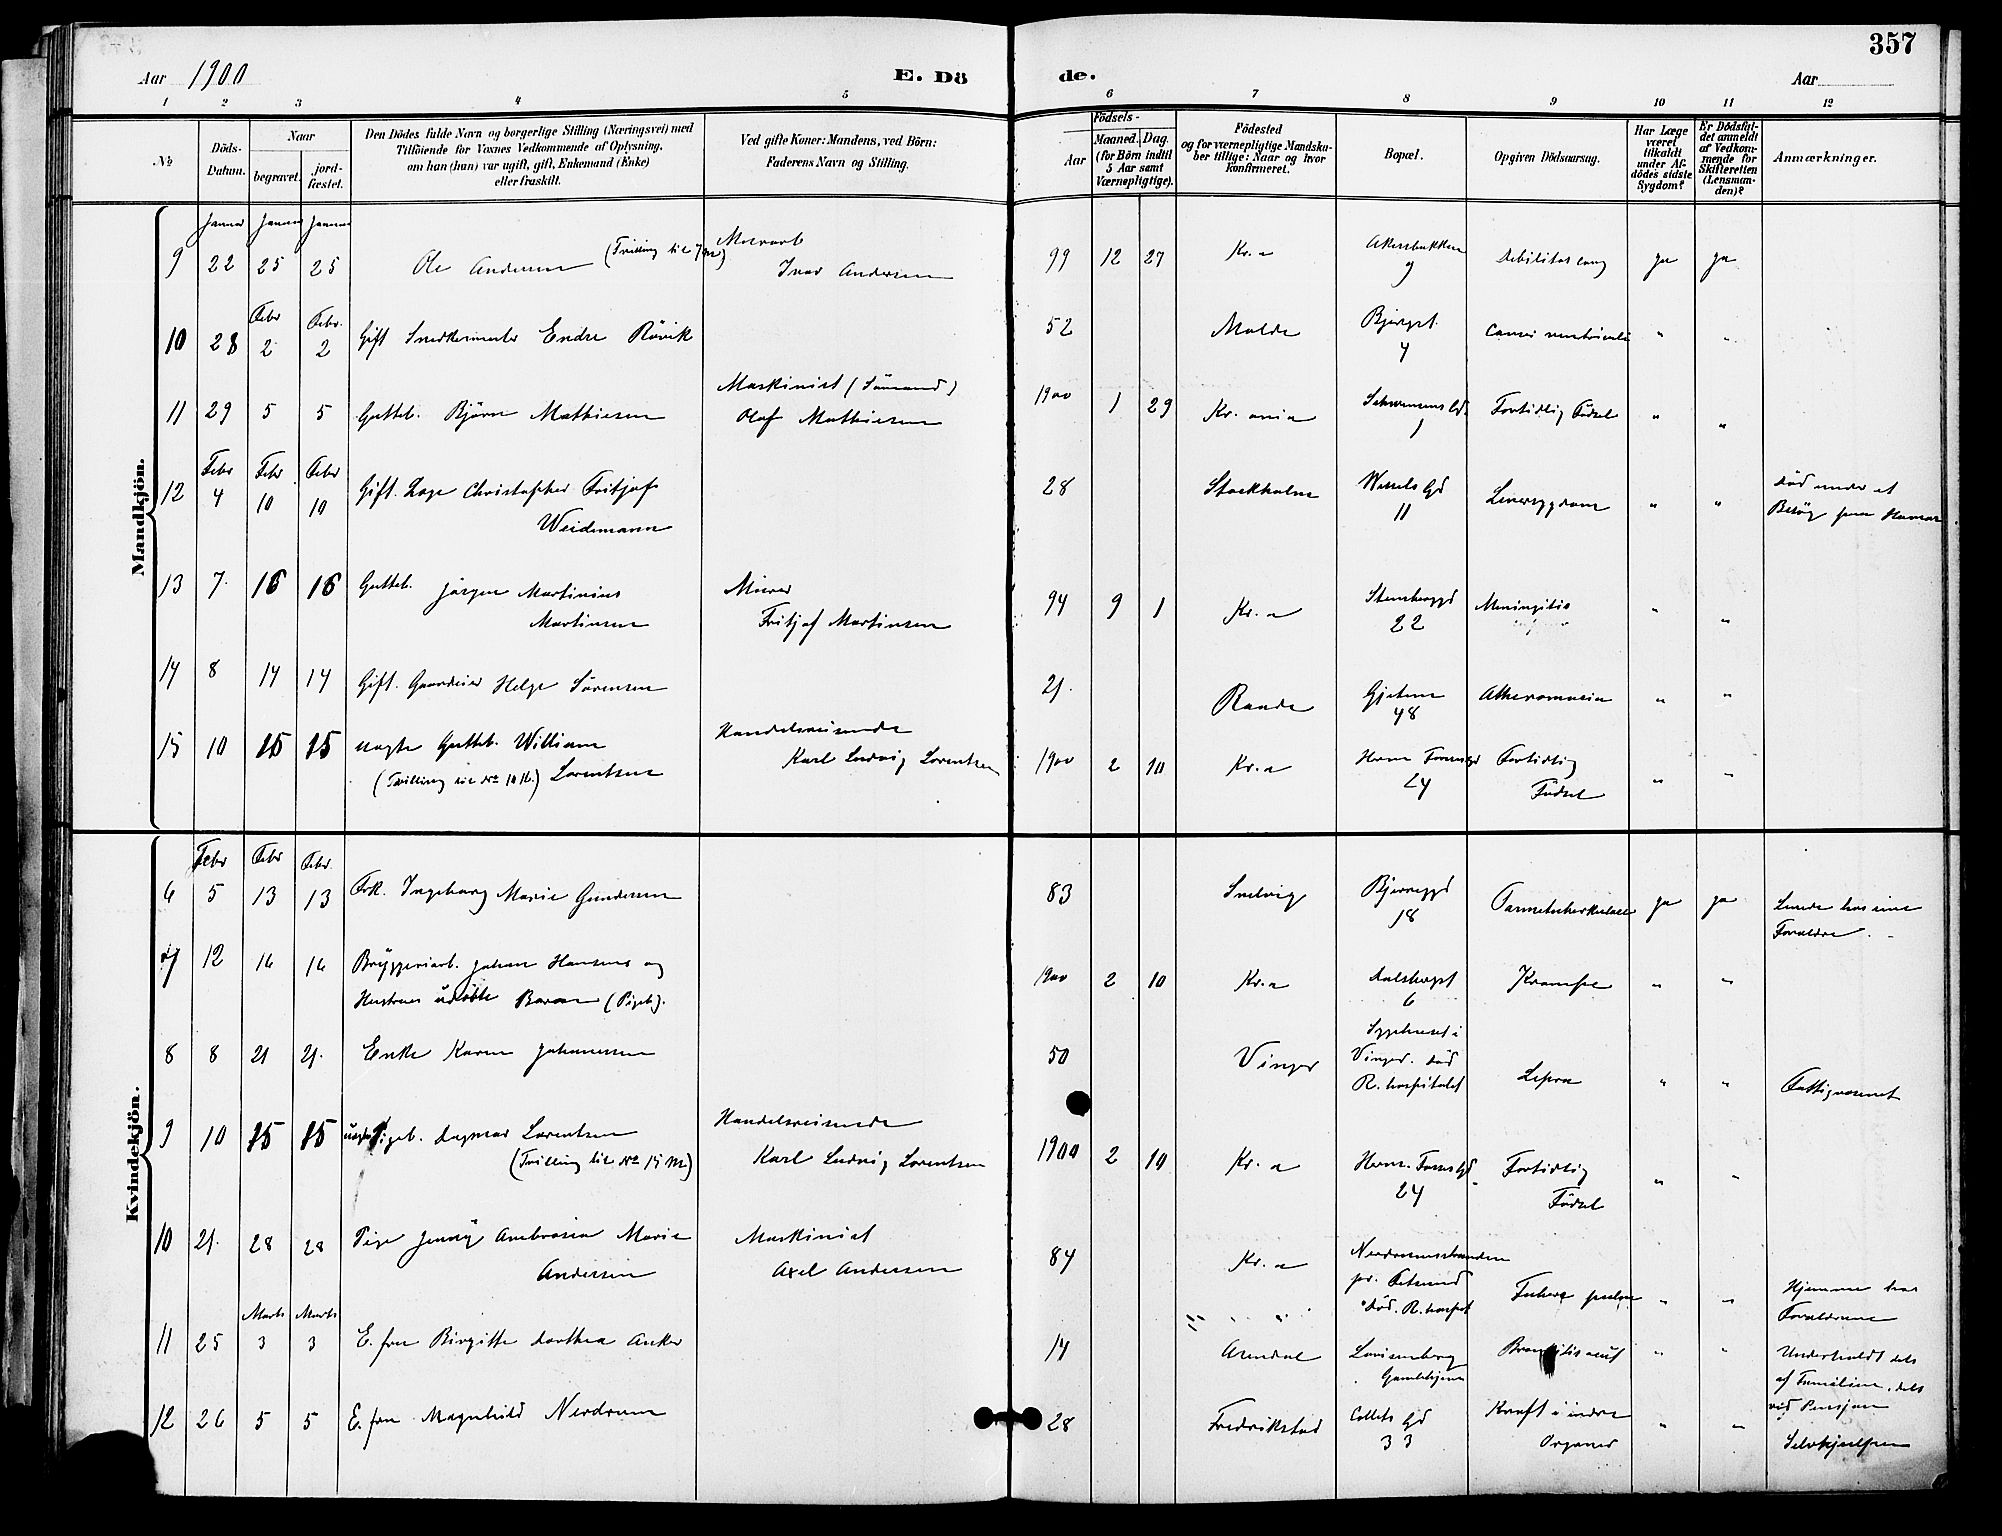 357
Aar 1900
E. Dö
de.
Aar
1 2 3 4 5 6 7 8 9 10 11 12
No
Döds-
Datum.
Naar
begravet.
jord-
fæstet.
Den Dödes fulde Navn og borgerlige Stilling (Næringsvei) med
Tilföiende for Voxnes Vedkommende af Oplysning,
om han (hun) var ugift, gift, Enkemand (Enke)
eller fraskilt.
Ved gifte Koner: Mandens, ved Börn:
Faderens Navn og Stilling.
Födsels-
Aar
Maaned. Dag.
(for Börn indtil
5 Aar samt
Værnepligtige).
Födested
og for værnepligtige Mandsku-
ber tillige: Naar og hvor
konfirmeret.
Bopæl.
Opgiven Dödsaarsag.
Har Læge
været
tilkaldt
under Af-
dödes sidste
Sygdom?
Er Dödsfal-
det anmeldt
af Vedkom-
mende for
Skifteretten
(Lensman-
den)?
Anmærkninger.
Mandkjön.
Januar Januar Januar
9 22 25 25 Ole Andersen (Tvilling til Murarb
Ivar Andersen 99 12 27 Kr.a Akersbakken 9 Debilitas cong ja ja
Febr Febr.
10 28 2 2 Gift Snedkermester Endre Rövik 52 Molde Bjergst. 4 Cancer ventriculi " "
11 29 5 5 Gutteb. Björn Mathiesen Maskinist (Sömand)
Olaf Mathiesen 1900 1 29 Kr. ania Schwensens Gd. 1 Fortidlig Födsel " "
Febr Febr Febr
12 4 10 10 Gift. Christopher Fritjof
Weidemann 28 Stockholm Wessels Gd 11 Leversygdom " " Död under et
Besög fra Hamar
13 7. 16 16 Gutteb. Jörgen Martinius
Martinsen Murer
Fritjof Martinsen 94 9 1 Kr. a Stensberggd 22 Meningitis " "
14 8 14 14 Gift. Gaardeier Helge Sörensen 21. Raade Gjetem 48 Atheromasia " "
15 10 15 15 uægte Gutteb. William
(Tvilling til No 10 K.) Lorentsen Handelsreisende
Karl Ludvig Lorentsen 1900 2 10 Kr. a Herm Fossgd 24 Fortidlig
Födsel " "
Kvindekjön.
Febr Febr Febr.
6 5 13 13 Frk. Ingeborg Marie Gundersen 83 Svelvig Bjerregd 18 Tarmetuberkulose ja ja Levede hos sine
Forældre.
7 12 16 16 Bryggeriarb. Johan Hansens og
Hustrus udöbte Baran (Pigeb). 1900 2 10 Kr. a Dalsbergst 6 Krampe " "
8 8 21 21. Enke Karen Johannessen 50 Vinger Sygehuset i
Vinger. död
R. hospitalet Lepra " " Fattigvæsenet
9 10 15 15 uægte Pigeb. Dagmar Lorentsen
(Tvilling til No 15 M) Handelsreisende
Karl Ludvig Lorentsen 1900 2 10 Kr. a Herm. Foss Gd. 24 Fortidlig
Födsel " "
10 21. 28 28 Pige Jenny Ambrosia Marie
Andersen Maskinist
Axel Andersen 84 Kr. a
pr. Fetsund
död. R. hospit Tuberc pulm " " Hjemme hos
Forældrene
Marts Marts
11 25 3 3 E. fru Birgitte Dorthea Anker 14 Arendal Lovisenberg
Gamlehjem Bronkitis acut " " Underholdt dels
af Familien, dels
ved Pension
12 26 5 5 E. fru Magnhild Nerdrum 28 Fredrikstad Collets Gd 33 Kræft i indre
Organer " " Selvhjulpen